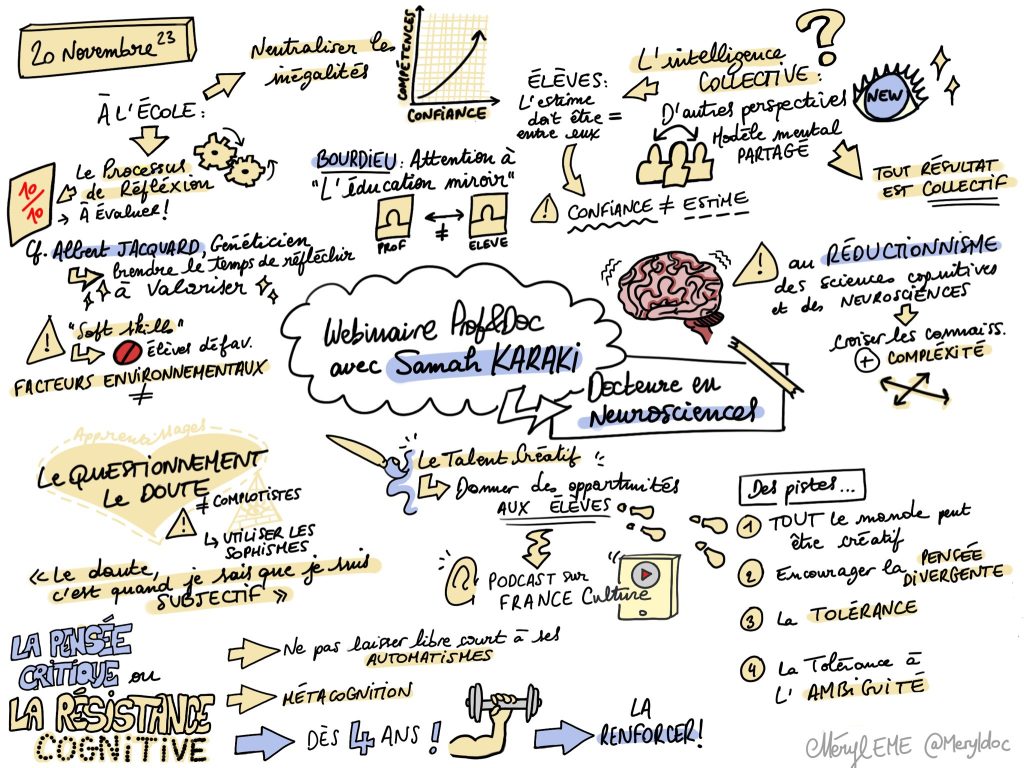 20 Novembre 23
Neutraliser les
inégalités
COMPÉTENCES
CONFIANCE
À L'ÉCOLE :
Le Processus
de Réflexion
→ À évaluer !
10/10
Cf. Albert JACQUARD, Généticien
Prendre le temps de réfléchir
à Valoriser
"Soft skills"
Élèves défav.
FACTEURS ENVIRONNEMENTAUX
≠
BOURDIEU : Attention à
"L'éducation miroir"
PROF
≠
ELEVE
ÉLÈVES :
L'estime
doit être =
entre eux
CONFIANCE ≠ ESTIME
L'intelligence
COLLECTIVE :
?
D'autres perspectives
Modèle mental
PARTAGÉ
NEW
TOUT RÉSULTAT
EST COLLECTIF
au RÉDUCTIONNISME
des sciences cognitives
et des NEUROSCIENCES
Croiser les connaiss.
+ COMPLEXITÉ
Webinaire Prof&Doc
avec Samah KARAKI
Docteure en
Neurosciences
Apprentissages
Le QUESTIONNEMENT
Le DOUTE
≠ COMPLOTISTES
↳ UTILISER LES
SOPHISMES
« Le doute,
c'est quand je sais que je suis
SUBJECTIF »
Le Talent Créatif
Donner des opportunités
AUX ÉLÈVES
PODCAST sur
FRANCE Culture
Des pistes...
1 TOUT le monde peut
être créatif
2 Encourager la PENSÉE
DIVERGENTE
3 La TOLÉRANCE
4 La Tolérance à
L'AMBIGUITÉ
LA PENSÉE
CRITIQUE ou
LA RÉSISTANCE
COGNITIVE
Ne pas laisser libre court à ses
AUTOMATISMES
MÉTACOGNITION
DÈS 4 ANS !
LA
RENFORCER !
MérylEME @Meryldoc